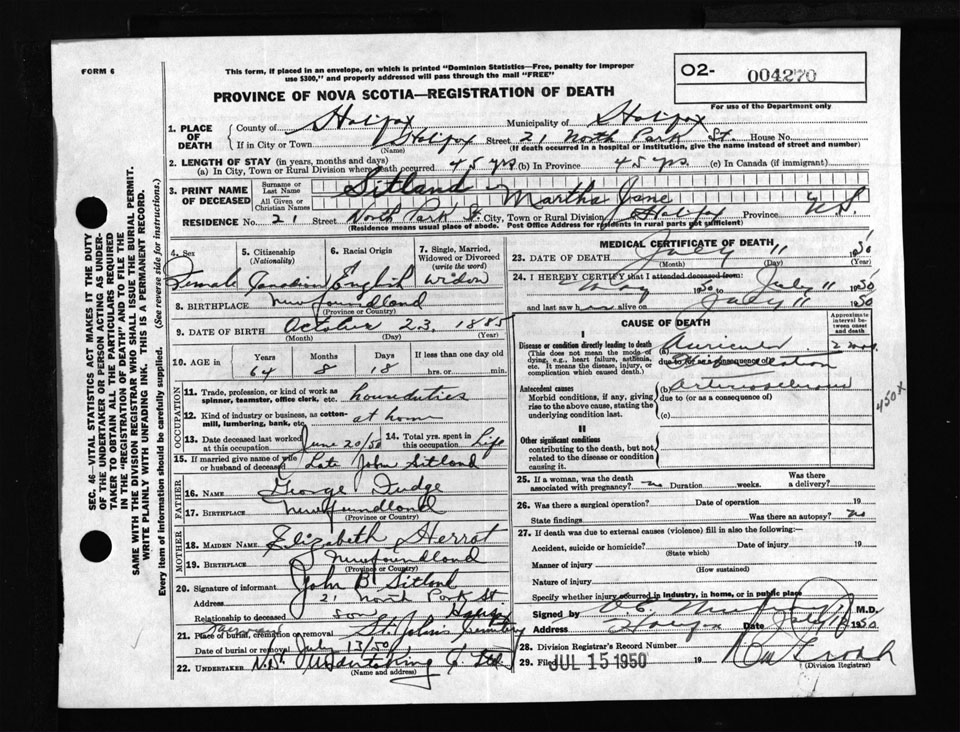 FORM 6
This form, if placed in an envelope, on which is printed "Dominion Statistics—Free, penalty for improper
use $300," and properly addressed will pass through the mail "FREE"
O2- 004270
For use of the Department only
PROVINCE OF NOVA SCOTIA—REGISTRATION OF DEATH
SEC. 46—VITAL STATISTICS ACT MAKES IT THE DUTY
OF THE UNDERTAKER OR PERSON ACTING AS UNDER-
TAKER TO OBTAIN ALL THE PARTICULARS REQUIRED
IN THE "REGISTRATION OF DEATH" AND TO FILE THE
SAME WITH THE DIVISION REGISTRAR WHO SHALL ISSUE THE BURIAL PERMIT.
WRITE PLAINLY WITH UNFADING INK. THIS IS A PERMANENT RECORD.
Every item of information should be carefully supplied. (See reverse side for instructions.)
1. PLACE OF DEATH County of Halifax Municipality of Halifax
If in City or Town Halifax Street 21 North Park St. House No.
(Name) (If death occurred in a hospital or institution, give the name instead of street and number)
2. LENGTH OF STAY (in years, months and days)
(a) In City, Town or Rural Division where death occurred 45 yrs (b) In Province 45 yrs. (c) In Canada (if immigrant)
3. PRINT NAME OF DECEASED Surname or Last Name Sitland
All Given or Christian Names Martha Jane
RESIDENCE No. 21 Street North Park St. City, Town or Rural Division Halifax Province N.S.
(Residence means usual place of abode. Post Office Address for residents in rural parts not sufficient)
4. Sex 5. Citizenship (Nationality) 6. Racial Origin 7. Single, Married, Widowed or Divorced (write the word)
Female Canadian English Widow
8. BIRTHPLACE Newfoundland
(Province or Country)
9. DATE OF BIRTH October 23, 1885
(Month) (Day) (Year)
10. AGE in Years Months Days If less than one day old
64 8 18 hrs. or min.
OCCUPATION
11. Trade, profession, or kind of work as
spinner, teamster, office clerk, etc. house duties
12. Kind of industry or business, as cotton-
mill, lumbering, bank, etc. at home
13. Date deceased last worked at this occupation June 20/50 14. Total yrs. spent in this occupation Life
15. If married give name of wife
or husband of deceased Late John Sitland
FATHER
16. NAME George Fudge
17. BIRTHPLACE Newfoundland
(Province or Country)
MOTHER
18. MAIDEN NAME Elizabeth Herrot
19. BIRTHPLACE Newfoundland
(Province or Country)
20. Signature of informant John B. Sitland
Address 21 North Park St
Relationship to deceased son Halifax
21. Place of burial, cremation or removal St. John's Cemetery
Date of burial or removal July 13/50
22. UNDERTAKER N.S. Undertaking Co Ltd
(Name and address)
MEDICAL CERTIFICATE OF DEATH
23. DATE OF DEATH July 11 1950
(Month) (Day) (Year)
24. I HEREBY CERTIFY that I attended deceased from
May 1950 July 11 1950
and last saw her alive on July 11 1950
CAUSE OF DEATH
Approximate interval between onset and death
I
Disease or condition directly leading to death (a) Auricular 2 mos.
(This does not mean the mode of due to (or as a consequence of) Fibrillation
dying, e.g., heart failure, asthenia,
etc. It means the disease, injury, or
complication which caused death.)
Antecedent causes (b) Arteriosclerosis
Morbid conditions, if any, giving due to (or as a consequence of)
rise to the above cause, stating the
underlying condition last. (c)
450X
II
Other significant conditions
contributing to the death, but not
related to the disease or condition
causing it.
25. If a woman, was the death Was there
associated with pregnancy? no Duration weeks. a delivery?
26. Was there a surgical operation? Date of operation 19
State findings Was there an autopsy? no
27. If death was due to external causes (violence) fill in also the following:
Accident, suicide or homicide? Date of injury 19
(State which)
Manner of injury
(How sustained)
Nature of injury
Specify whether injury occurred in industry, in home, or in public place
Signed by M.D.
Address Halifax Date July 1950
28. Division Registrar's Record Number
29. Filed JUL 15 1950 19
(Division Registrar)